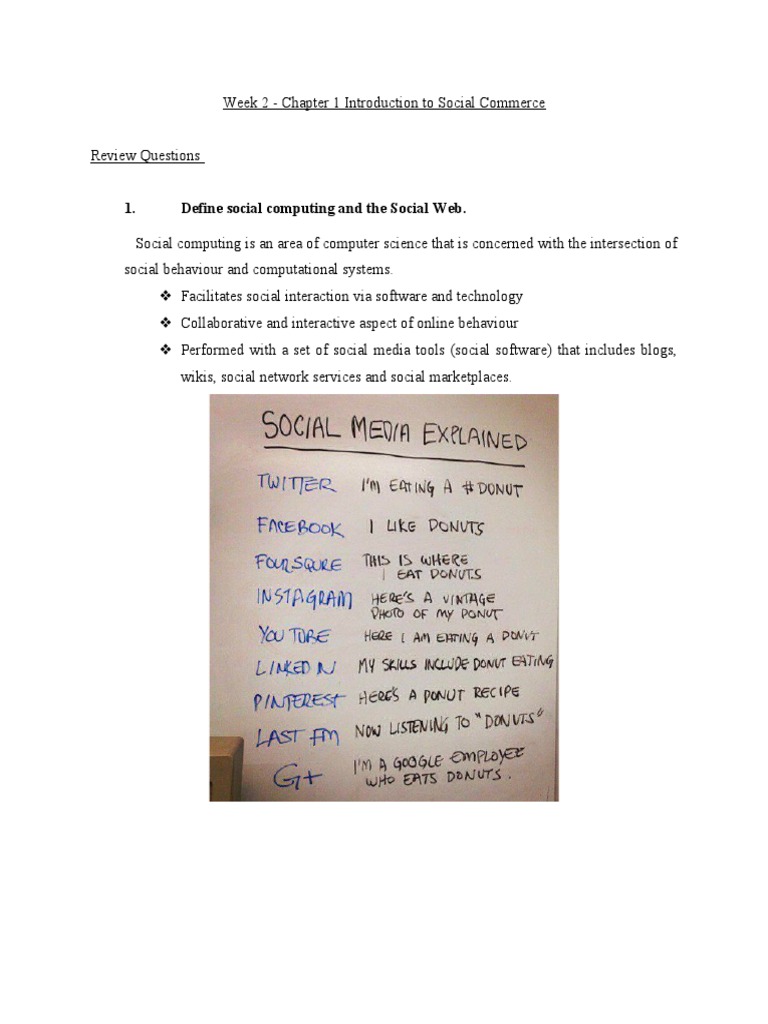 Week 2 - Chapter 1 Introduction to Social Commerce
Review Questions
1. Define social computing and the Social Web.
Social computing is an area of computer science that is concerned with the intersection of
social behaviour and computational systems.
❖ Facilitates social interaction via software and technology
❖ Collaborative and interactive aspect of online behaviour
❖ Performed with a set of social media tools (social software) that includes blogs,
wikis, social network services and social marketplaces.
SOCIAL MEDIA EXPLAINED
TWITTER I'M EATING A #DONUT
FACEBOOK I LIKE DONUTS
FOURSQURE THIS IS WHERE
I EAT DONUTS
INSTAGRAM HERE'S A VINTAGE
PHOTO OF MY DONUT
YOU TUBE HERE I AM EATING A DONUT
LINKED IN MY SKILLS INCLUDE DONUT EATING
PINTEREST HERE'S A DONUT RECIPE
LAST FM NOW LISTENING TO "DONUTS"
G+ I'M A GOOGLE EMPLOYEE
WHO EATS DONUTS.